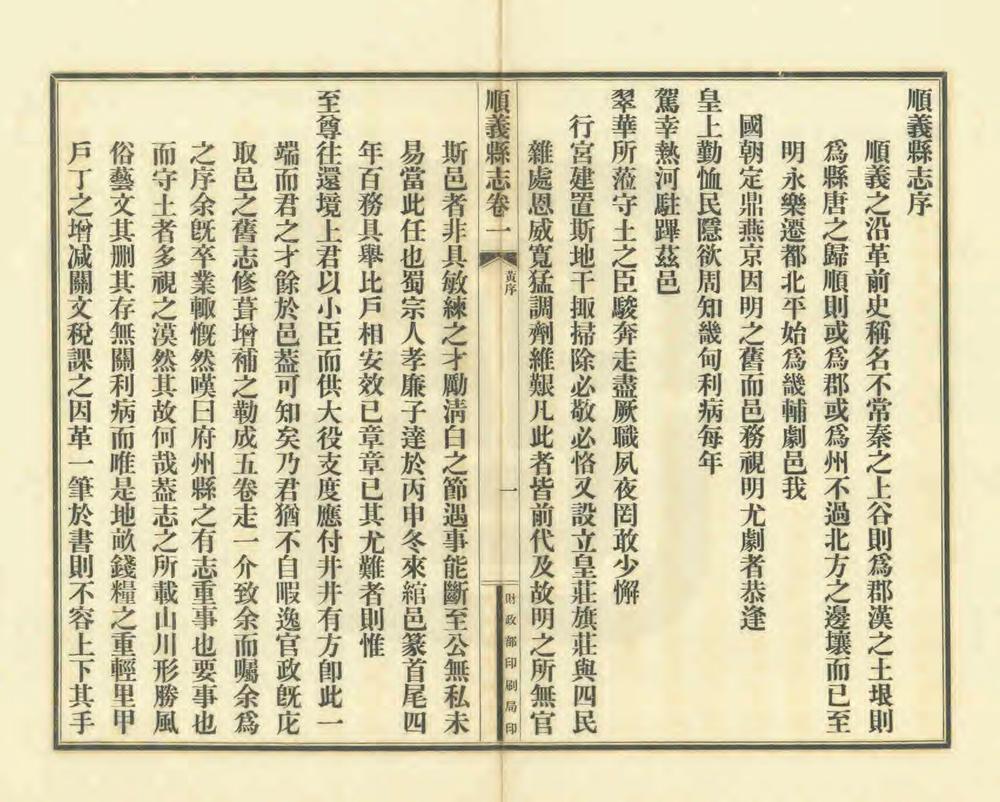 順義縣志序
順義之沿革前史稱名不常秦之上谷則爲郡漢之土垠則
爲縣唐之歸順則或爲郡或爲州不過北方之邊壤而已至
明永樂遷都北平始爲畿輔劇邑我
國朝定鼎燕京因明之舊而邑務視明尤劇者恭逢
皇上勤恤民隱欲周知畿甸利病每年
駕幸熱河駐蹕茲邑
翠華所蒞守土之臣駿奔走盡厥職夙夜罔敢少懈
行宮建置斯地干掫掃除必敬必恪又設立皇莊旗莊與四民
雜處恩威寬猛調劑維艱凡此者皆前代及故明之所無官
順義縣志卷一
黃序
一
財政部印刷局印
斯邑者非具敏練之才勵淸白之節遇事能斷至公無私未
易當此任也蜀宗人孝廉子達於丙申冬來綰邑篆首尾四
年百務具舉比戶相安效已章章已其尤難者則惟
至尊往還境上君以小臣而供大役支度應付井井有方卽此一
端而君之才餘於邑葢可知矣乃君猶不自暇逸官政旣庀
取邑之舊志修葺增補之勒成五卷走一介致余而囑余爲
之序余旣卒業輙慨然嘆曰府州縣之有志重事也要事也
而守土者多視之漠然其故何哉葢志之所載山川形勝風
俗藝文其删其存無關利病而唯是地畝錢糧之重輕里甲
戶丁之增减關文稅課之因革一筆於書則不容上下其手